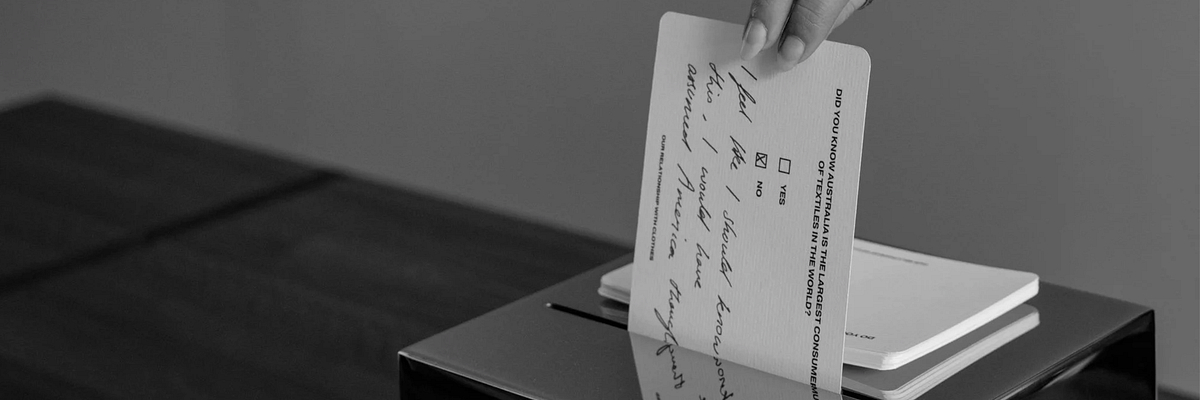 DID YOU KNOW AUSTRALIA IS THE LARGEST CONSUMER
OF TEXTILES IN THE WORLD?
YES
NO
I feel like I should know
this, I would have
assumed America though
OUR RELATIONSHIP WITH CLOTHES
DO YO